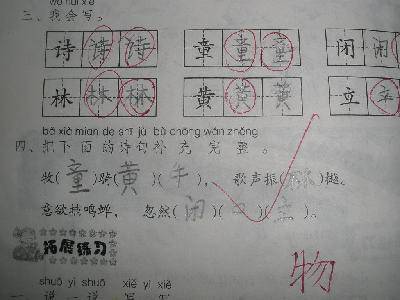 wǒ huì xiě
三、我会写。
诗 诗 诗 童 童 童 闭 闭
林 林 林 黄 黄 黄 立 立
bǎ xià miàn de shī jù bǔ chōng wán zhěng
四、把下面的诗句补充完整。
牧(童)骑(黄)(牛), 歌声振(林)樾。
意欲捕鸣蝉, 忽然(闭)(口)(立)。
拓展练习
物
shuō yi shuō xiě yi xiě